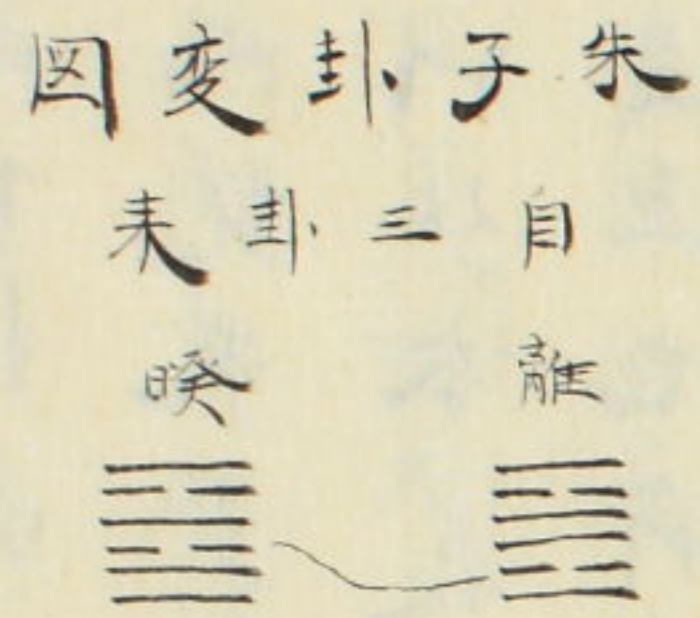 朱子卦変図
自三卦来
離 睽